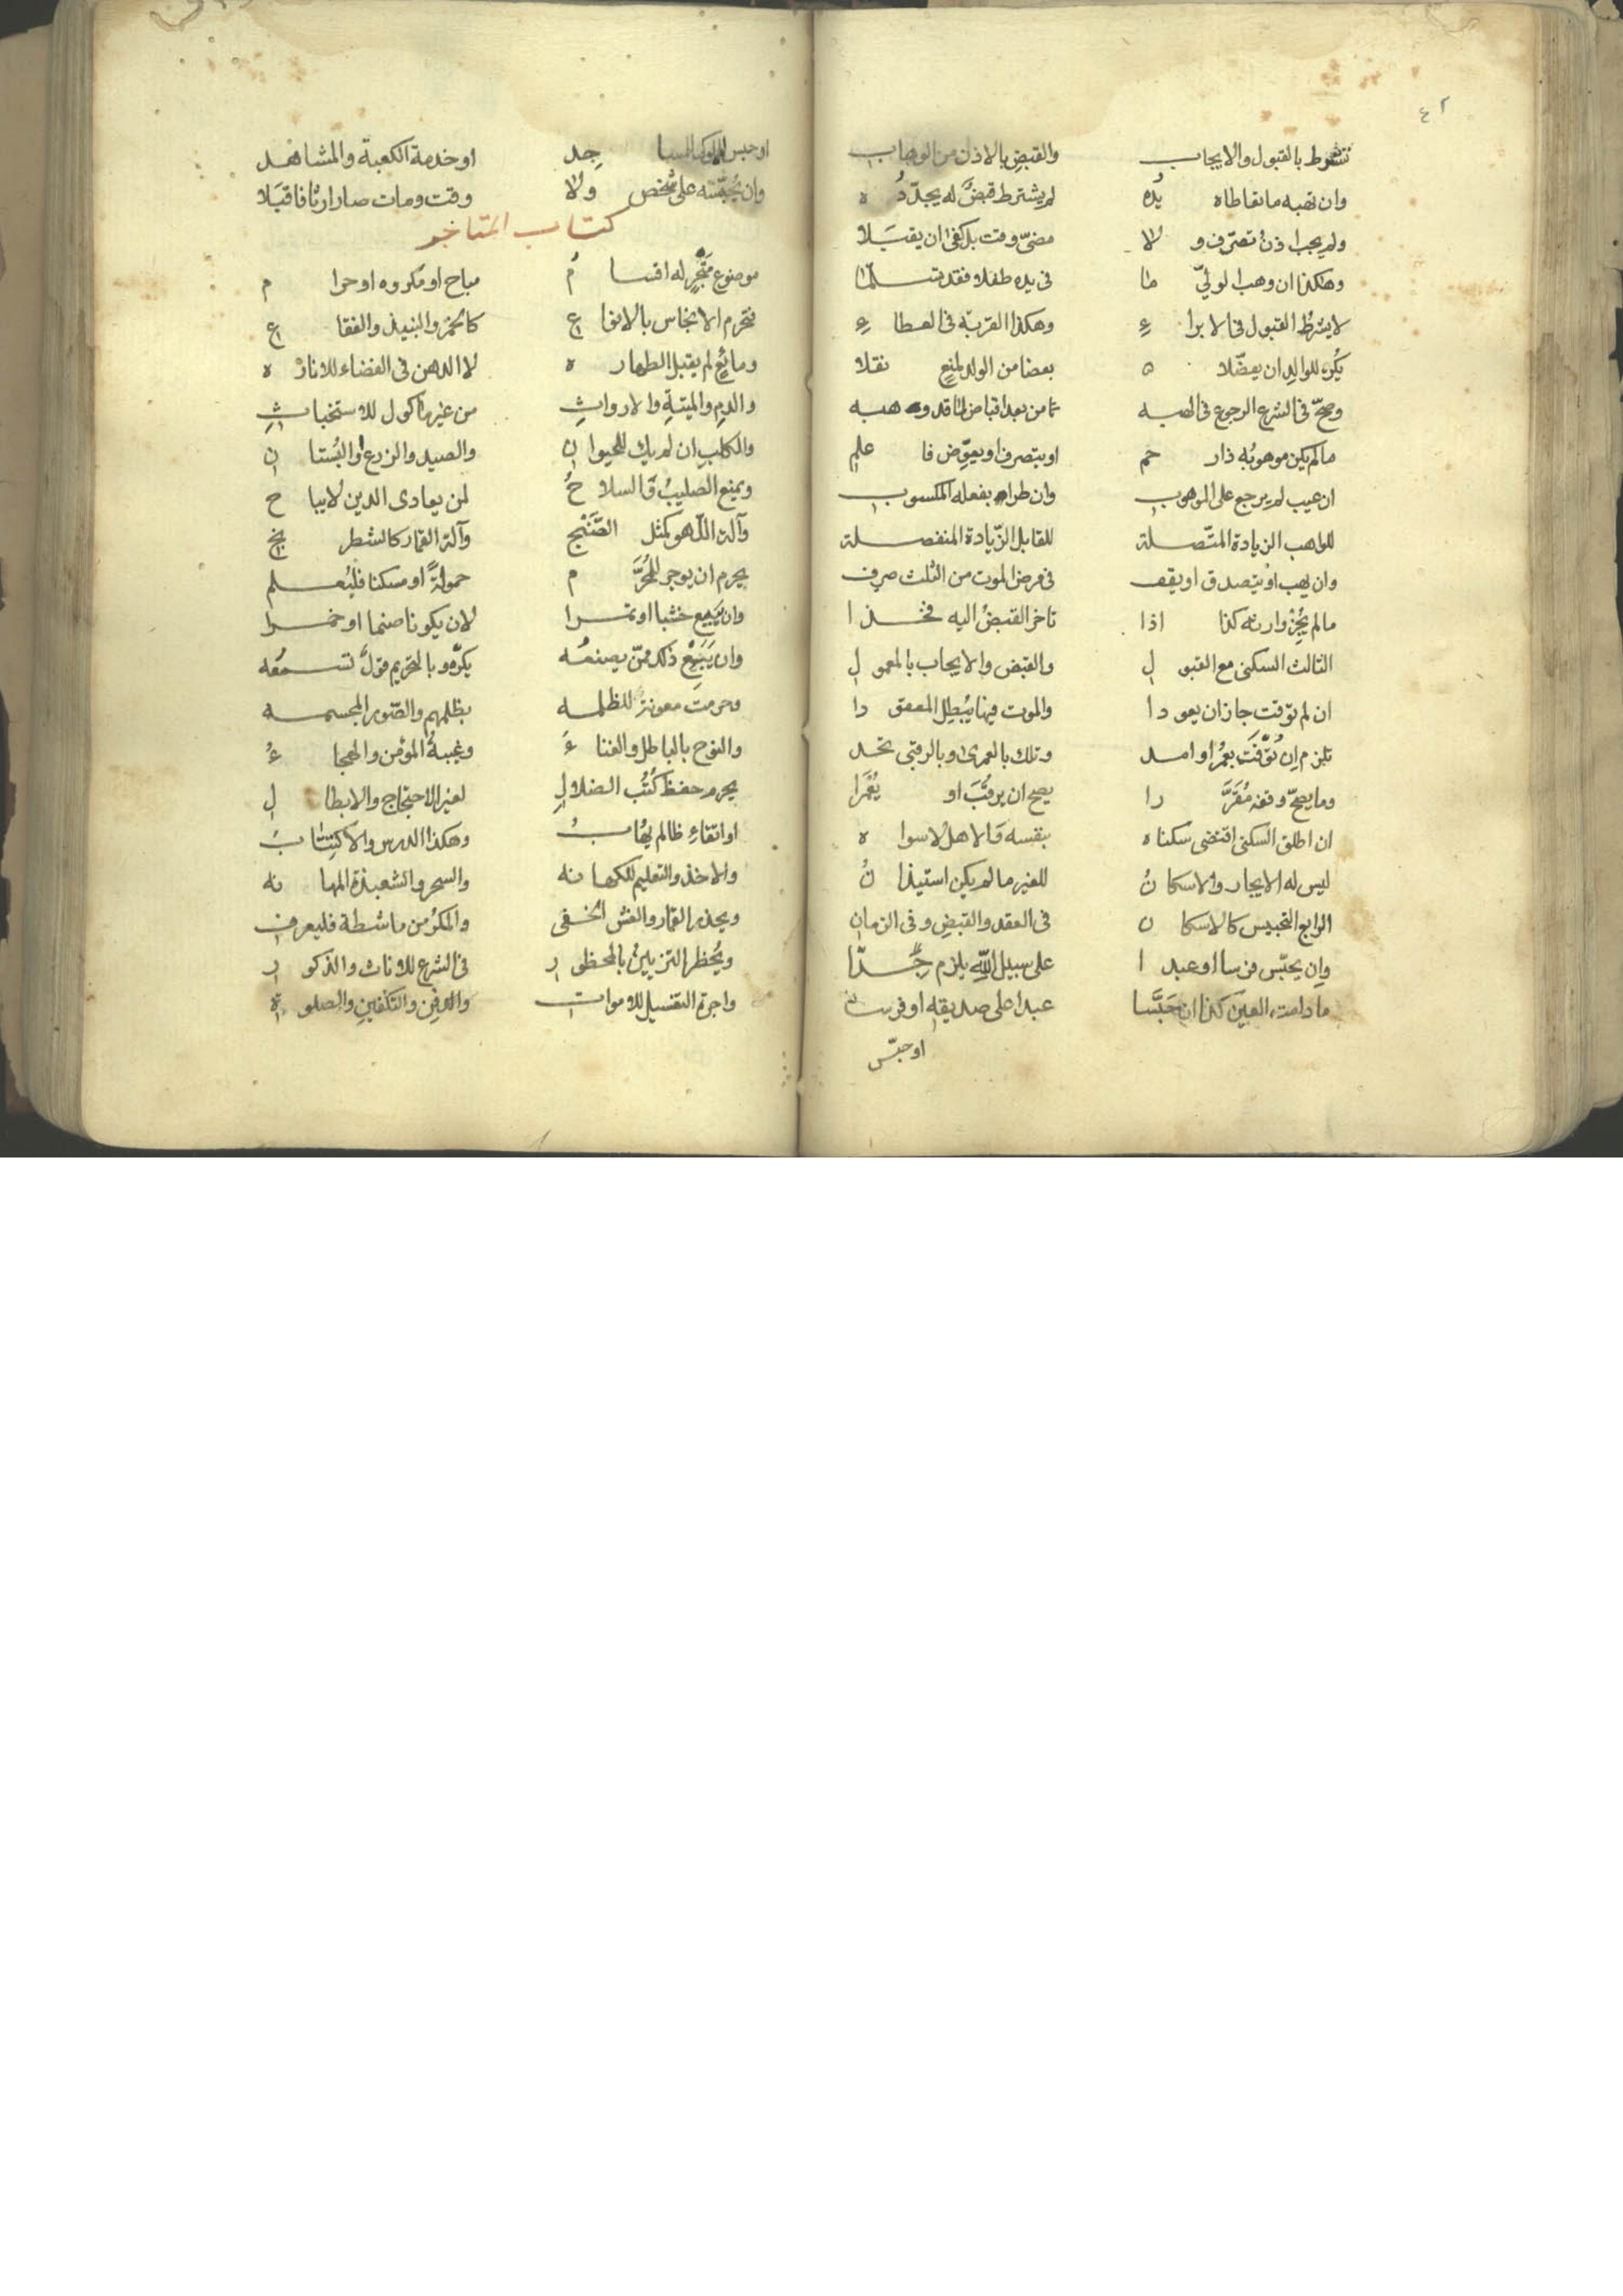 ٤٢
تشترط بالقبول والايجاب والقبض بالاذن من الوهاب
وان تهبه ما تقاطاه يده لم يشترط قبض له يجدده
ولم يجب اذن تصرف ولا مضى وقت بل كفى ان يقبلا
وهكذا ان وهب الولي ما فى يده طفلا فقد تسلما
لا يشترط القبول فى الابراء وهكذا القربة فى العطاء
يكره للوالد ان يفضلا بعضا من الولد لمنع نقلا
وصح فى الشرع الرجوع فى الهبه ثامن بعد اقباض لما قد وهبه
ما لم يكن موهوبه ذا رحم او يتصرف او يعوض فاعلم
ان عيب لم يرجع على الموهوب وان طراه بفعله المكسوب
للواهب الزيادة المتصلة للقابل الزيادة المنفصلة
وان يهب او يتصدق او يقف فى مرض الموت من الثلث صرف
ما لم يجز وارثه كذا اذا تاخر القبض اليه فخذا
الثالث السكنى مع القبول والقبض والايجاب بالمعمول
ان لم توقت جاز ان يعودا والموت فيها يبطل المعقودا
تلزم ان توقت بعمر او امد وتلك بالعمرى وبالرقبى تحد
وما يصح وقفه مقررا يصح ان يرقب او يعمرا
ان اطلق السكنى اقتضى سكناه بنفسه والاهل لا سواه
ليس له الايجار والاسكان للغير ما لم يكن استيذان
الرابع التحبيس كالاسكان فى العقد والقبض وفى الزمان
وان يحبس فرسا او عبدا على سبيل الله يلزم جدا
ما دامت العين كذا ان حبسا عبدا على صديقه او فرسا
او حبس
او حبس المملوك للمساجد او خدمة الكعبة والمشاهد
وان يحبسه على شخص ولا وقت ومات صار ارثا فاقبلا
كتاب المتاجر
موضوع متجر له اقسام مباح او مكروه او حرام
فتحرم الانجاس بالانواع كالخمر والنبيذ والفقاع
ومائع لم يقبل الطهاره لا الدهن فى الفضاء للاناره
والدم والميتة والارواث من غير ماكول للاستخباث
والكلب ان لم يك للحيوان والصيد والزرع او البستان
ويمنع الصليب والسلاح لمن يعادى الدين لا يباح
وآلة اللهو كمثل الصنج وآلة القمار كالشطرنج
يحرم ان يوجر للمحرم حمولة او مسكنا فليعلم
وان يبيع خشبا او تمرا لان يكونا صنما او خمرا
وان يبع ذلك ممن يصنعه يكره وبالتحريم قول تسمعه
وحرمت معونة للظلمه بظلمهم والصور المجسمه
والنوح بالباطل والغناء وغيبة المؤمن والهجاء
يحرم حفظ كتب الضلال لغير الاحتجاج والابطال
او اتقاء ظالم يهاب وهكذا الدرس والاكتتاب
والاخذ والتعليم للكهانه والسحر والشعبذة المهانه
ويحذر القمار والغش الخفى والمكر من ماشطة فليعرف
ويحظر التزيين بالمحظور فى الشرع للاناث والذكور
واجرة التغسيل للاموات والدفن والتكفين والصلوة